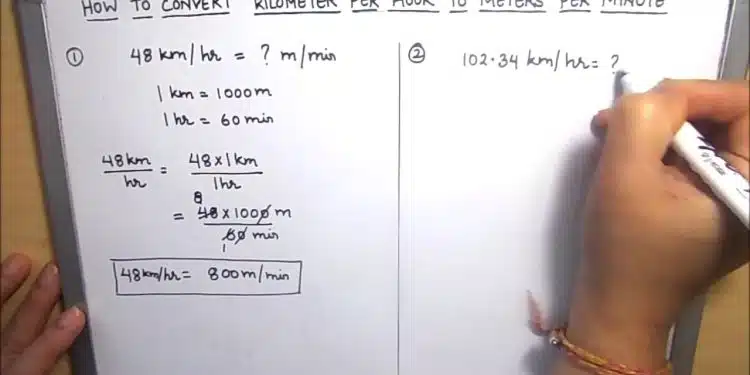 HOW TO CONVERT KILOMETER PER HOUR TO METERS PER MINUTE
① 48 km/hr = ? m/min
1 km = 1000m
1 hr = 60 min
48km/hr = 48 x 1km/1hr
8
= 48 x 1000 m/60 min
1
48km/hr = 800m/min
② 102.34 km/hr = ?